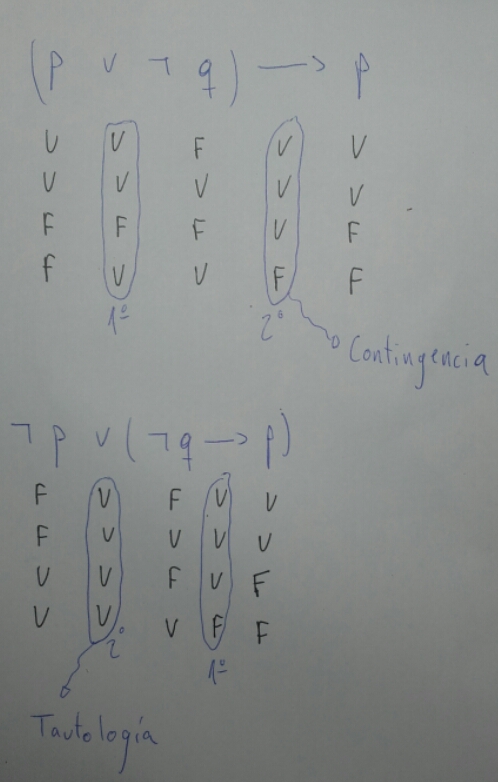 (p ∨ ¬ q) → p
V V F V V
V V V V V
F F F V F
F V V F F
1º 2º
Contingencia
¬ p ∨ (¬ q → p)
F V F V V
F V V V V
V V F V F
V V V F F
2º 1º
Tautología